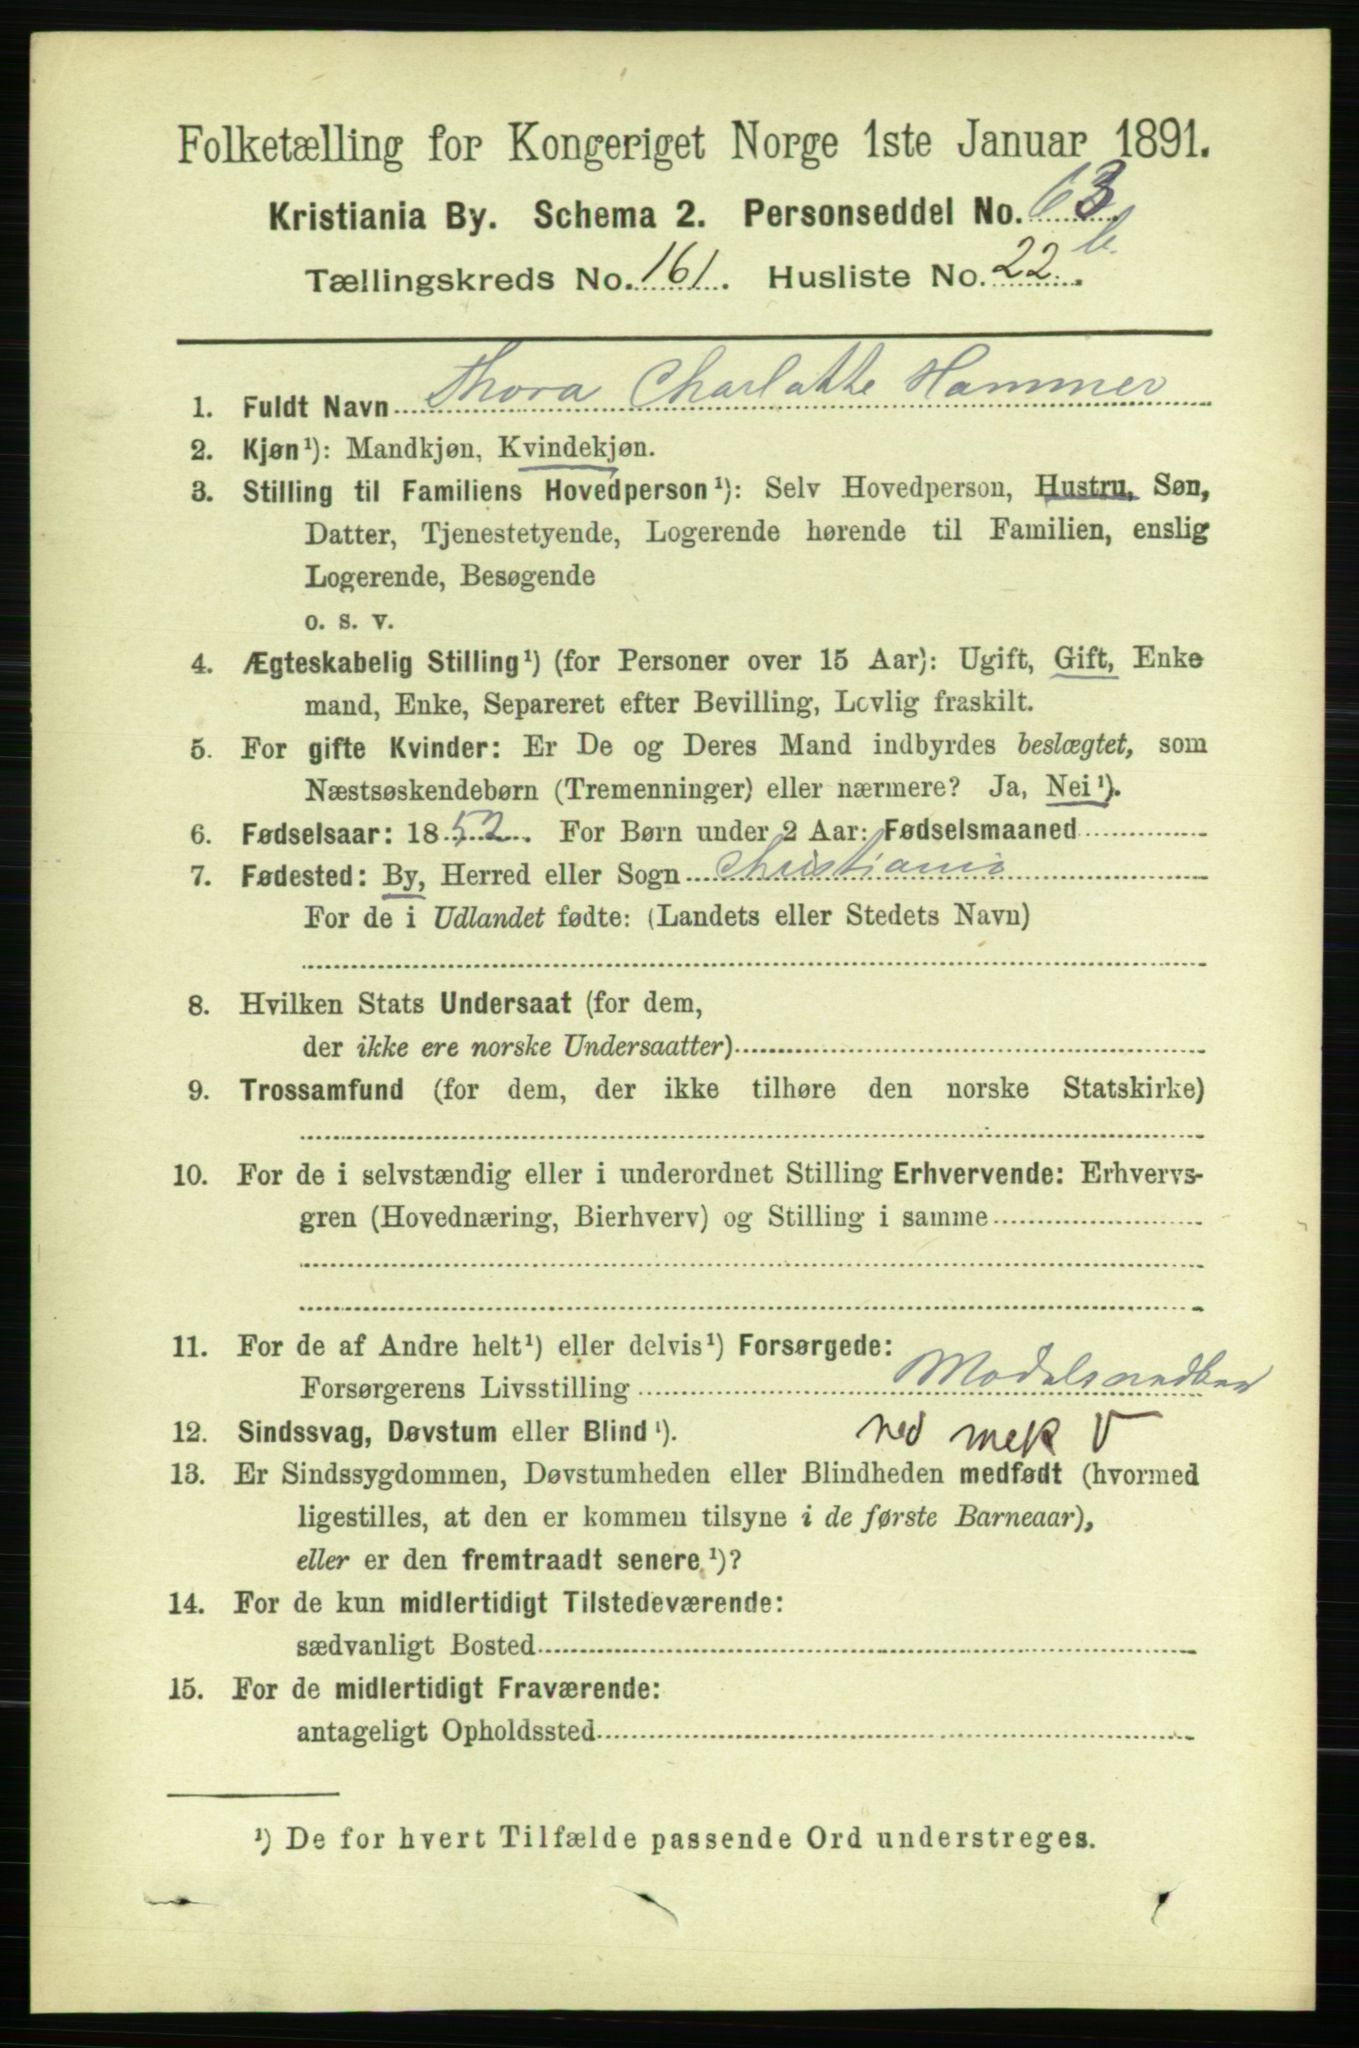 Folketælling for Kongeriget Norge 1ste Januar 1891.
Kristiania By. Schema 2. Personseddel No. 63
Tællingskreds No. 161. Husliste No. 22 b.
1. Fuldt Navn Thora Charlotte Hammer
2. Kjøn¹): Mandkjøn, Kvindekjøn.
3. Stilling til Familiens Hovedperson¹): Selv Hovedperson, Hustru, Søn,
Datter, Tjenestetyende, Logerende hørende til Familien, enslig
Logerende, Besøgende
o. s. v.
4. Ægteskabelig Stilling¹) (for Personer over 15 Aar): Ugift, Gift, Enke
mand, Enke, Separeret efter Bevilling, Lovlig fraskilt.
5. For gifte Kvinder: Er De og Deres Mand indbyrdes beslægtet, som
Næstsøskendebørn (Tremenninger) eller nærmere? Ja, Nei¹).
6. Fødselsaar: 1852. For Børn under 2 Aar: Fødselsmaaned
7. Fødested: By, Herred eller Sogn Christiania
For de i Udlandet fødte: (Landets eller Stedets Navn)
8. Hvilken Stats Undersaat (for dem,
der ikke ere norske Undersaatter)
9. Trossamfund (for dem, der ikke tilhøre den norske Statskirke)
10. For de i selvstændig eller i underordnet Stilling Erhvervende: Erhvervs-
gren (Hovednæring, Bierhverv) og Stilling i samme
11. For de af Andre helt¹) eller delvis¹) Forsørgede:
Forsørgerens Livsstilling Modelsnedker
12. Sindssvag, Døvstum eller Blind¹). ned mek V
13. Er Sindssygdommen, Døvstumheden eller Blindheden medfødt (hvormed
ligestilles, at den er kommen tilsyne i de første Barneaar),
eller er den fremtraadt senere¹)?
14. For de kun midlertidigt Tilstedeværende:
sædvanligt Bosted
15. For de midlertidigt Fraværende:
antageligt Opholdssted
¹) De for hvert Tilfælde passende Ord understreges.